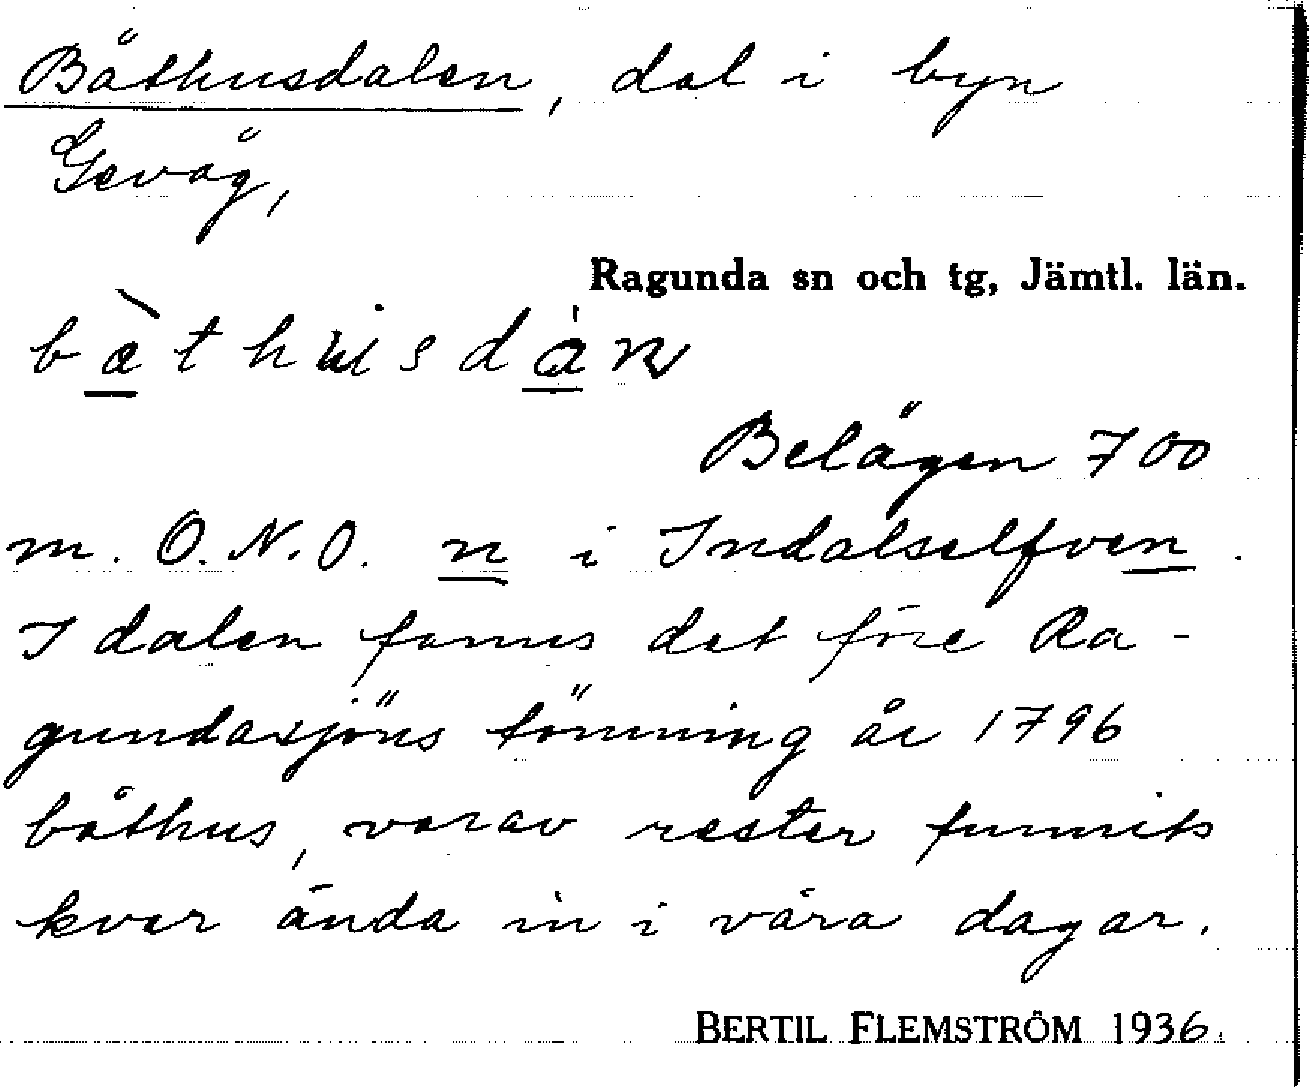 Båthusdalen, dal i byn
Gevåg,
Ragunda sn och tg, Jämtl. län.
Belägen 700
m. O.N.O. n i Indalselfven.
I dalen fanns det före Ra-
gundasjöns tömning år 1796
båthus, varav rester funnits
kvar ända in i våra dagar.
BERTIL FLEMSTRÖM 1936.